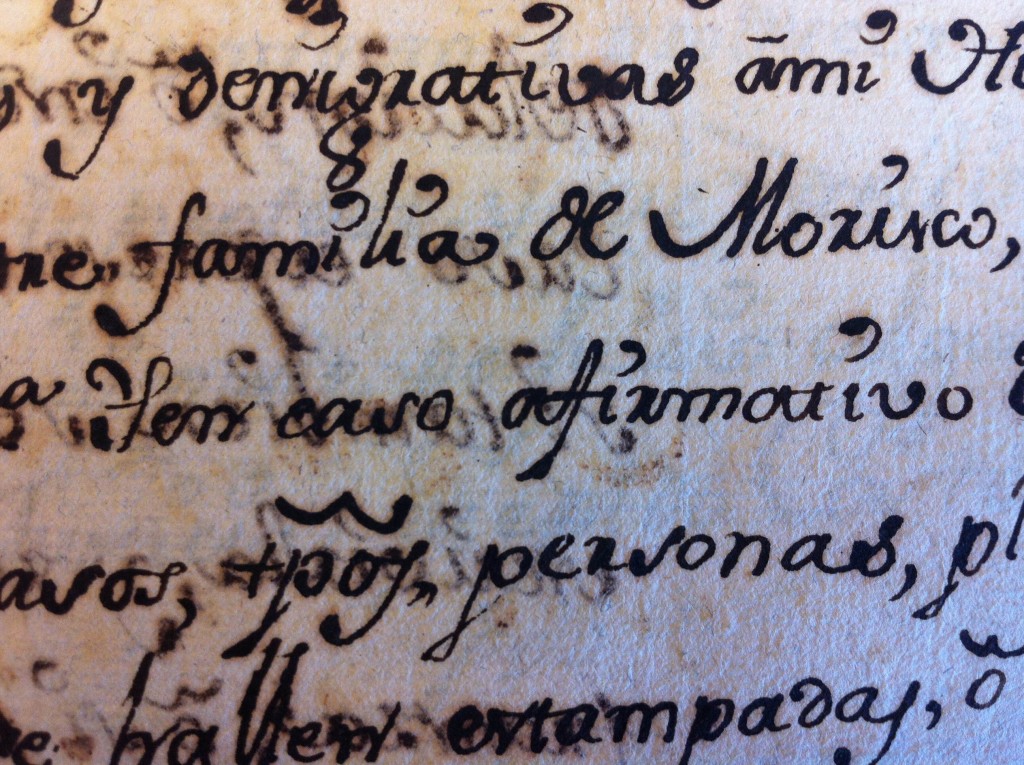 y denigrativas ami
familia, de Morisco,
en caso afirmativo
tpos, personas,
hallen estampadas, o